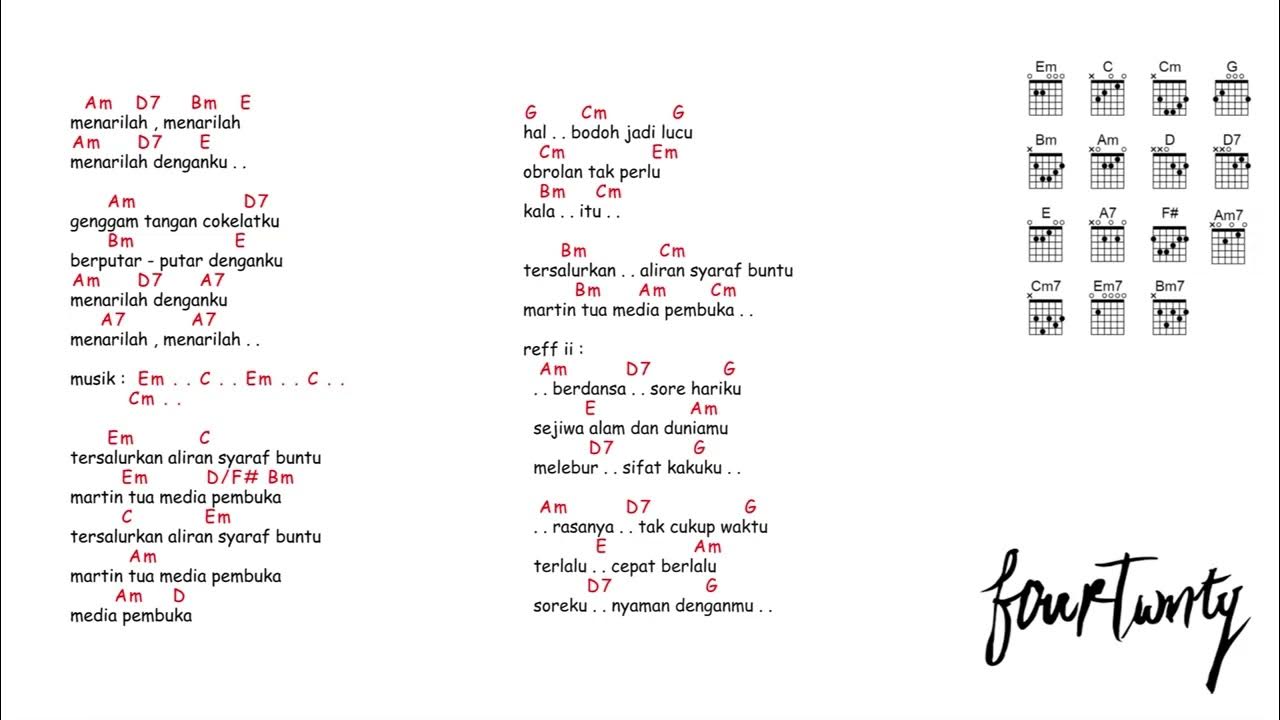 Am D7 Bm E
menarilah , menarilah
Am D7 E
menarilah denganku . .
Am D7
genggam tangan cokelatku
Bm E
berputar - putar denganku
Am D7 A7
menarilah denganku
A7 A7
menarilah , menarilah . .
musik : Em . . C . . Em . . C . .
Cm . .
Em C
tersalurkan aliran syaraf buntu
Em D/F# Bm
martin tua media pembuka
C Em
tersalurkan aliran syaraf buntu
Am
martin tua media pembuka
Am D
media pembuka
G Cm G
hal . . bodoh jadi lucu
Cm Em
obrolan tak perlu
Bm Cm
kala . . itu . .
Bm Cm
tersalurkan . . aliran syaraf buntu
Bm Am Cm
martin tua media pembuka . .
reff ii :
Am D7 G
. . berdansa . . sore hariku
E Am
sejiwa alam dan duniamu
D7 G
melebur . . sifat kakuku . .
Am D7 G
. . rasanya . . tak cukup waktu
E Am
terlalu . . cepat berlalu
D7 G
soreku . . nyaman denganmu . .
Em C Cm G
Bm Am D D7
E A7 F# Am7
Cm7 Em7 Bm7
fourTwnty